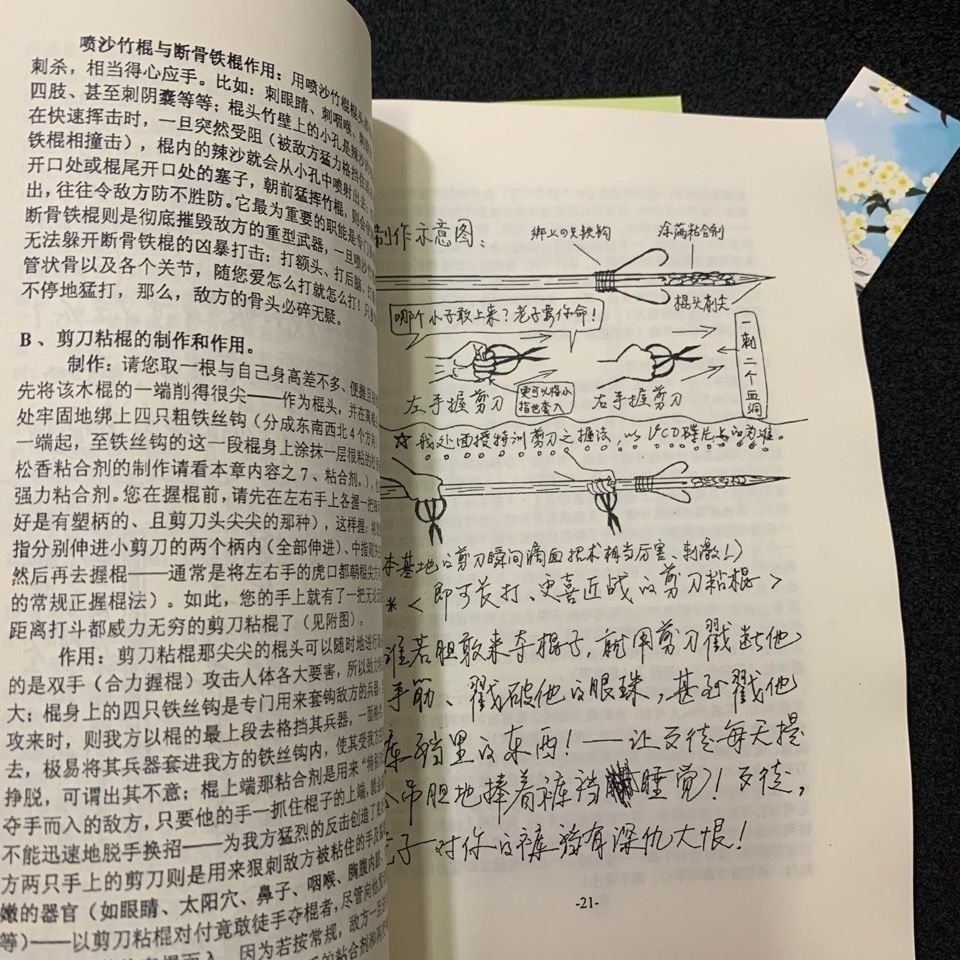 喷沙竹棍与断骨铁棍作用：用喷沙竹棍棍头
刺杀，相当得心应手。比如：刺眼睛、刺咽喉、
四肢、甚至刺阴囊等等；棍头竹壁上的小孔是辣沙
在快速挥击时，一旦突然受阻（被敌方猛力格挡住
铁棍相撞击），棍内的辣沙就会从小孔中喷射出去
开口处或棍尾开口处的塞子，朝前猛挥竹棍，则
出，往往令敌方防不胜防。它最为重要的职能是专门
断骨铁棍则是彻底摧毁敌方的重型武器，一旦喷沙
无法躲开断骨铁棍的凶暴打击：打额头、打后脑、打
管状骨以及各个关节，随您爱怎么打就怎么打！只要
不停地猛打，那么，敌方的骨头必碎无疑。
B、剪刀粘棍的制作和作用。
制作：请您取一根与自己身高差不多、便握且
先将该木棍的一端削得很尖——作为棍头，并在离
处牢固地绑上四只粗铁丝钩（分成东南西北4个方
一端起，至铁丝钩的这一段棍身上涂抹一层很粘的
松香粘合剂的制作请看本章内容之7、粘合剂。），
强力粘合剂。您在握棍前，请先在左右手上各握一把
好是有塑柄的、且剪刀头尖尖的那种），这样握：
指分别伸进小剪刀的两个柄内（全部伸进）、中指则
然后再去握棍——通常是将左右手的虎口都朝棍尖方
的常规正握棍法）。如此，您的手上就有了一把无论
距离打斗都威力无穷的剪刀粘棍了（见附图）。
作用：剪刀粘棍那尖尖的棍头可以随时地进行
的是双手（合力握棍）攻击人体各大要害，所以劲力
大；棍身上的四只铁丝钩是专门用来套钩敌方的兵器：
攻来时，则我方以棍的最上段去格挡其兵器，一面格
去，极易将其兵器套进我方的铁丝钩内，使其受我方
挣脱，可谓出其不意；棍上端那粘合剂是用来“
夺手而入的敌方，只要他的手一抓住棍子的上端，就会
不能迅速地脱手换招——为我方猛烈的反击创造了
方两只手上的剪刀则是用来狠刺敌方被粘住的手及
嫩的器官（如眼睛、太阳穴、鼻子、咽喉、胸腹内脏、
等）——以剪刀粘棍对付竟敢徒手夺棍者，尽管向他
因为若按常规，敌方一旦
的粘合剂和两
制作示意图：
绑上四只铁钩
涂满粘合剂
棍头削尖
哪个小子敢上来？老子要你命！
一刺二个血洞
左手握剪刀
更可以将小指也套入
右手握剪刀
☆我处面授特训剪刀之握法，以VCD碟片上的为准。
本基地的剪刀瞬间滴血招术相当厉害、刺激！）
*＜即可长打、更喜近战的剪刀粘棍＞
谁若胆敢来夺棍子，就用剪刀戳断他
手筋、戳破他的眼珠，甚至戳他
裤裆里的东西！——让歹徒每天提
心吊胆地捧着裤裆睡觉！歹徒，
老子一对你的裤裆有深仇大恨！
-21-